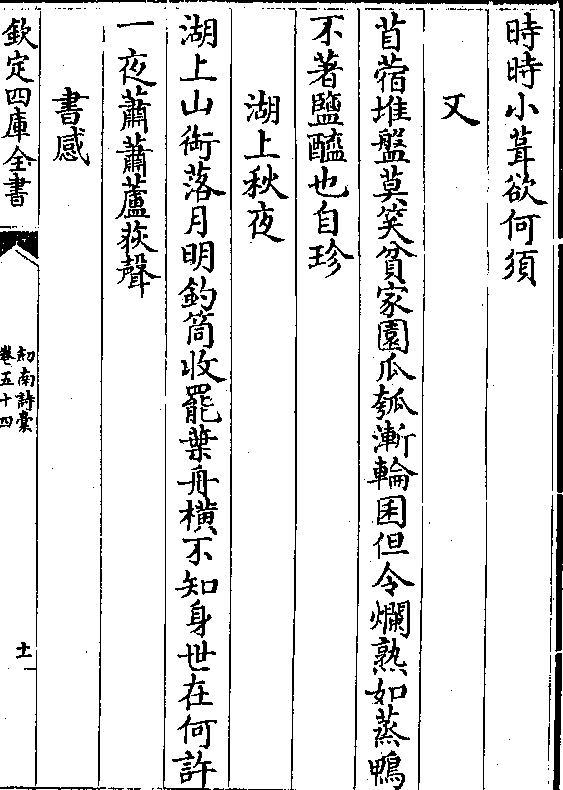 時時小葺欲何須
又
苜蓿堆盤莫笑貧家園瓜瓠漸輪囷但令爛熟如蒸鴨
不著鹽醯也自珍
湖上秋夜
湖上山銜落月明釣筒收罷葉舟橫不知身世在何許
一夜蕭蕭蘆荻聲
書感
欽定四庫全書
劍南詩稾
卷五十四
十一